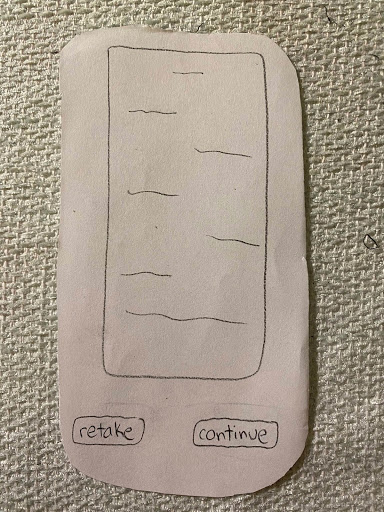 retake
continue